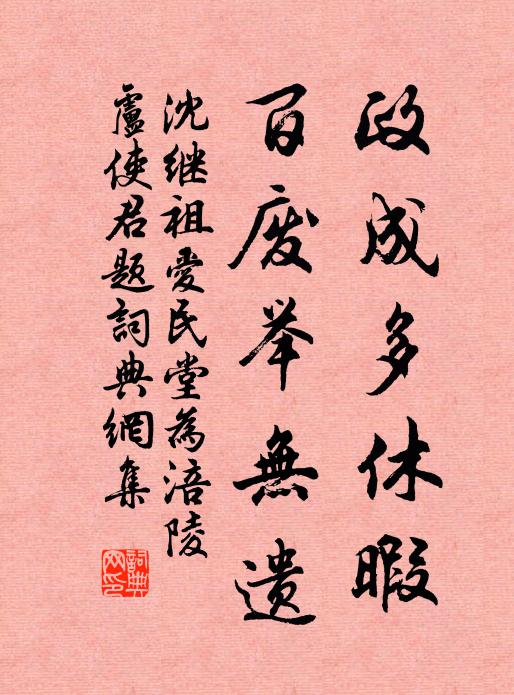 政成多休暇
百废举無遗
沈继祖爱民堂為涪陵
盧使君题詞典網集
詞典网印